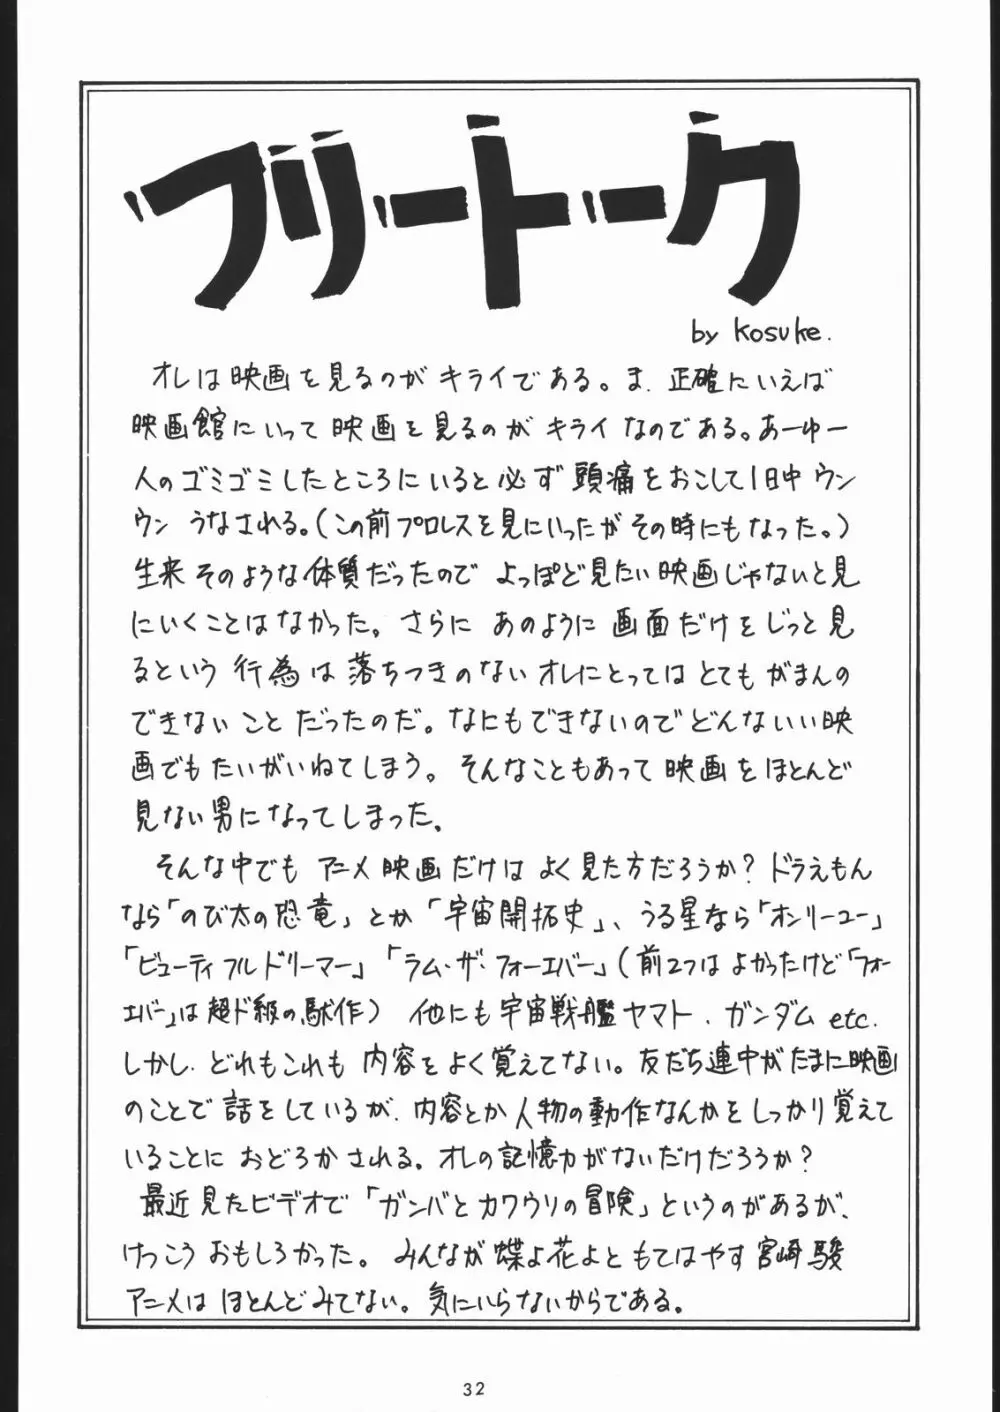 フリートーク
by Kosuke.
オレは映画を見るのがキライである。ま、正確にいえば
映画館にいって映画を見るのがキライなのである。あーゆー
人のゴミゴミしたところにいると必ず頭痛をおこして1日中ウン
ウンうなされる。(この前プロレスを見にいったがその時にもなった。)
生来そのような体質だったのでよっぽど見たい映画じゃないと見
にいくことはなかった。さらにあのように画面だけをじっと見
るという行為は落ちつきのないオレにとってはとてもがまんの
できないことだったのだ。なにもできないのでどんないい映
画でもたいがいねてしまう。そんなこともあって映画をほとんど
見ない男になってしまった。
そんな中でもアニメ映画だけはよく見た方だろうか?ドラえもん
なら「のび太の恐竜」とか「宇宙開拓史」、うる星なら「オンリーユー」
「ビューティフルドリーマー」「ラム・ザ・フォーエバー」(前2つはよかったけど「フォー
エバー」は超ド級の駄作)他にも宇宙戦艦ヤマト、ガンダムetc.
しかし、どれもこれも内容をよく覚えてない。友だち連中がたまに映画
のことで話をしているが、内容とか人物の動作なんかをしっかり覚えて
いることにおどろかされる。オレの記憶力がないだけだろうか?
最近見たビデオで「ガンバとカワウソの冒険」というのがあるが、
けっこうおもしろかった。みんなが蝶よ花よともてはやす宮崎駿
アニメはほとんどみてない。気にいらないからである。
32